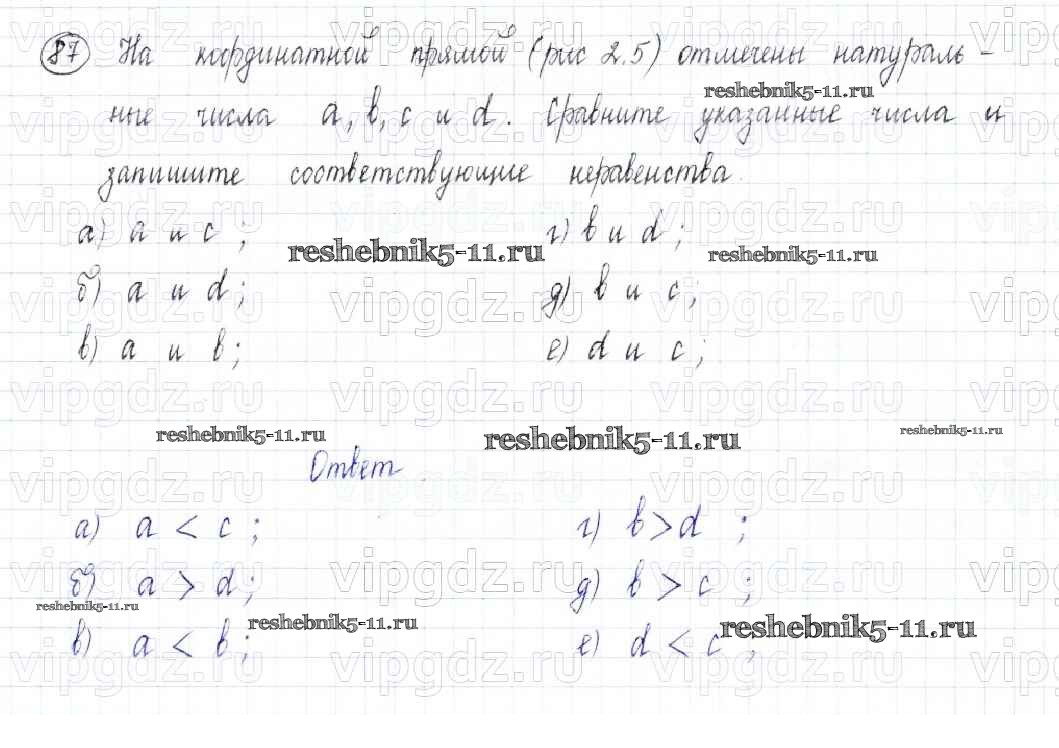 87 На координатной прямой (рис 2.5) отмечены натураль-
reshebnik5-11.ru
ные числа a, b, c и d. Сравните указанные числа и
запишите соответствующие неравенства.
а) a и c; г) b и d;
reshebnik5-11.ru reshebnik5-11.ru
б) a и d; д) b и c;
в) a и b; е) d и c;
reshebnik5-11.ru reshebnik5-11.ru reshebnik5-11.ru
Ответ
а) a < c; г) b > d;
б) a > d; д) b > c;
reshebnik5-11.ru reshebnik5-11.ru reshebnik5-11.ru
в) a < b; е) d < c;
vipgdz.ru